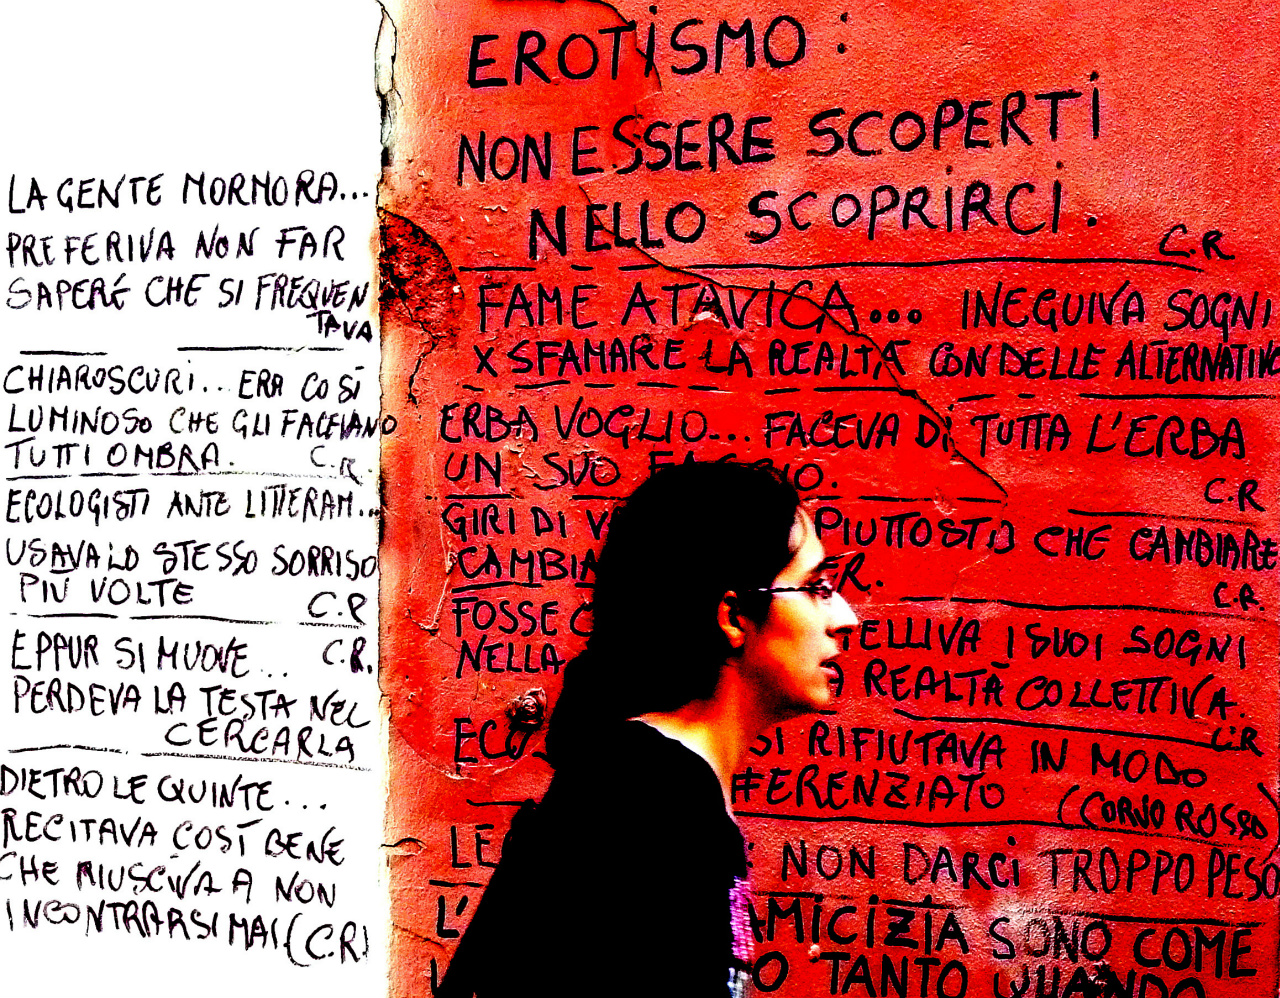 LA GENTE MORMORA...
PREFERIVA NON FAR
SAPERE CHE SI FREQUEN
TAVA
CHIAROSCURI... ERA COSÌ
LUMINOSO CHE GLI FACEVANO
TUTTI OMBRA. C.R.
ECOLOGISTI ANTE LITTERAM...
USAVA LO STESSO SORRISO
PIÙ VOLTE C.R
EPPUR SI MUOVE... C.R.
PERDEVA LA TESTA NEL
CERCARLA
DIETRO LE QUINTE...
RECITAVA COSÌ BENE
CHE RIUSCIVA A NON
INCONTRARSI MAI (C.R)
EROTISMO:
NON ESSERE SCOPERTI
NELLO SCOPRIRCI.
C.R
FAME ATAVICA... INEGUIVA SOGNI
X SFAMARE LA REALTÀ CON DELLE ALTERNATIVE
ERBA VOGLIO... FACEVA DI TUTTA L'ERBA
UN SUO
C.R
GIRI DI PIUTTOSTO CHE CAMBIARE
C.R.
FOSSE I SUOI SOGNI
NELLA REALTÀ COLLETTIVA.
C.R
SI RIFIUTAVA IN MODO
#ERENZIATO (CORVO ROSSO)
LE : NON DARCI TROPPO PESO
L' AMICIZIA SONO COME
TANTO QUANDO